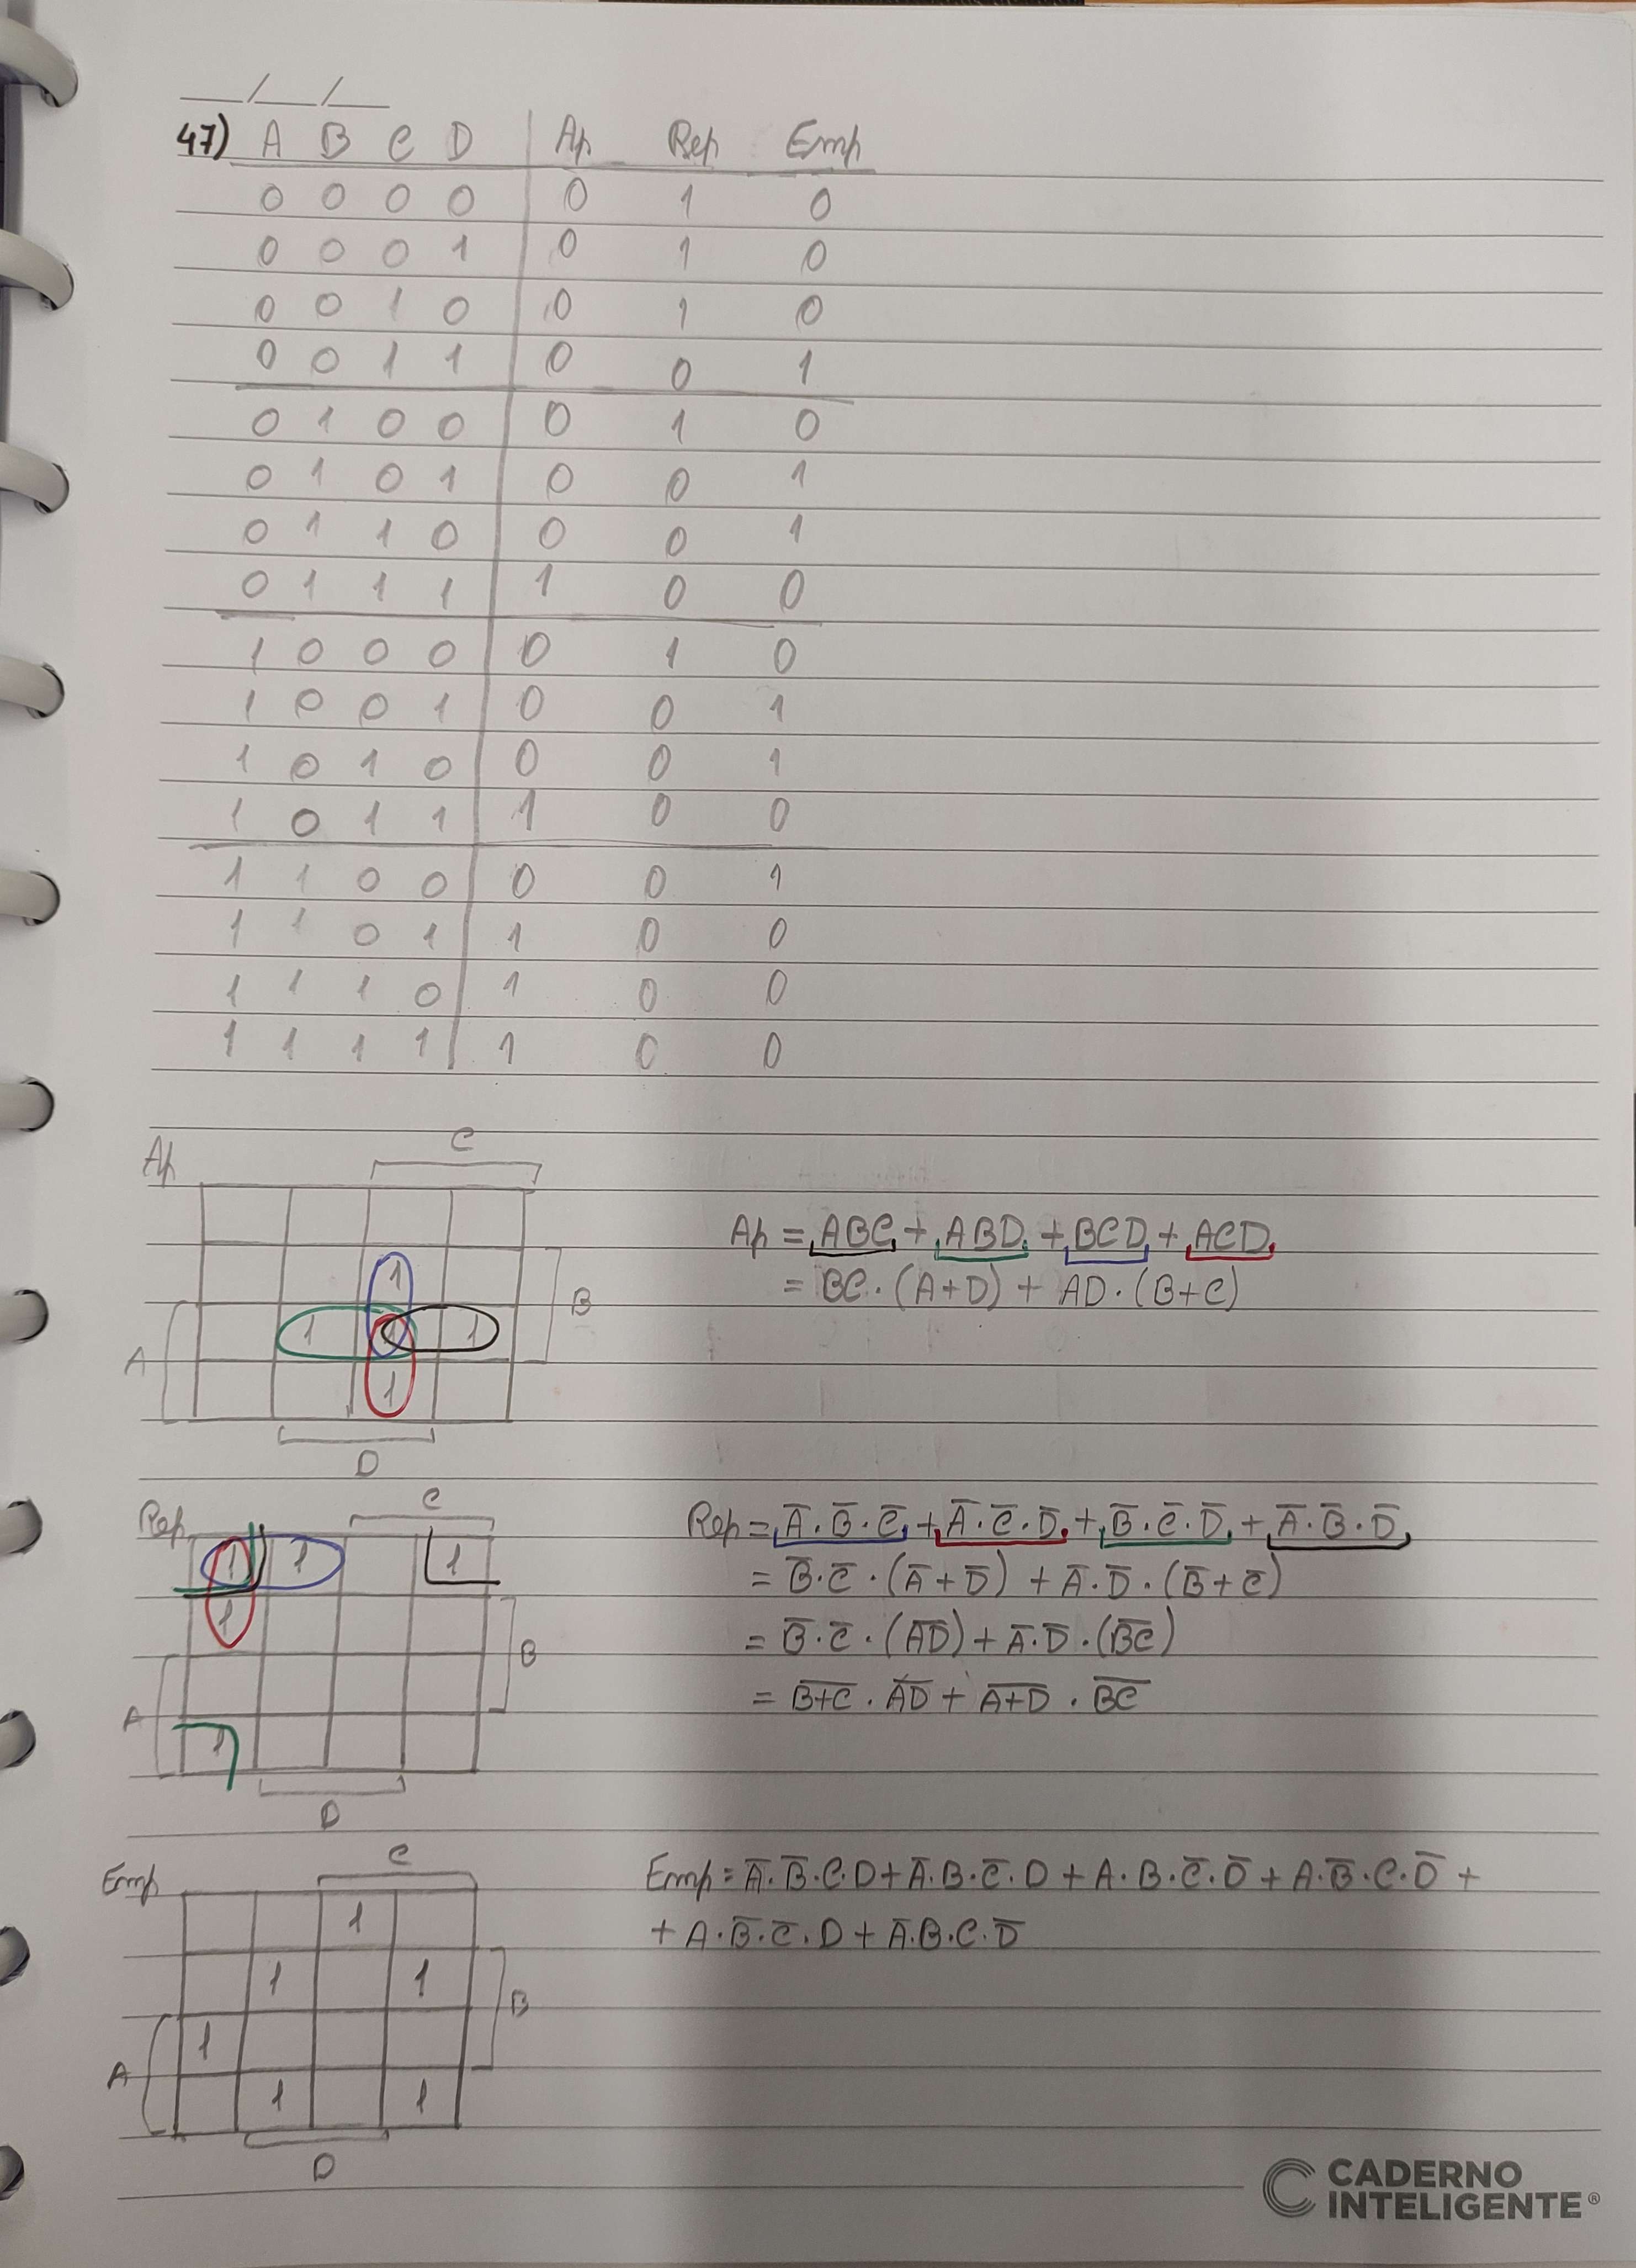 __/__/__
47) A B C D | Ap Rep Emp
0 0 0 0 | 0 1 0
0 0 0 1 | 0 1 0
0 0 1 0 | 0 1 0
0 0 1 1 | 0 0 1
0 1 0 0 | 0 1 0
0 1 0 1 | 0 0 1
0 1 1 0 | 0 0 1
0 1 1 1 | 1 0 0
1 0 0 0 | 0 1 0
1 0 0 1 | 0 0 1
1 0 1 0 | 0 0 1
1 0 1 1 | 1 0 0
1 1 0 0 | 0 0 1
1 1 0 1 | 1 0 0
1 1 1 0 | 1 0 0
1 1 1 1 | 1 0 0
Ap C
1
B
1 1 1
A
1
D
Ap = ABC + ABD + BCD + ACD
= BC . (A+D) + AD . (B+C)
Rep C
1 1 1
1
B
A
1
D
Rep = A̅.B̅.C̅ + A̅.C̅.D̅ + B̅.C̅.D̅ + A̅.B̅.D̅
= B̅.C̅.(A̅+D̅) + A̅.D̅.(B̅+C̅)
= B̅.C̅.(A̅D̅) + A̅.D̅.(B̅C̅)
= B̅+̅C̅ . A̅D̅ + A̅+̅D̅ . B̅C̅
Emp C
1
1 1
B
1
A
1 1
D
Emp = A̅.B̅.C.D + A̅.B.C̅.D + A.B.C̅.D̅ + A.B̅.C.D̅ +
+ A.B̅.C̅.D + A̅.B.C.D̅
CADERNO
INTELIGENTE®